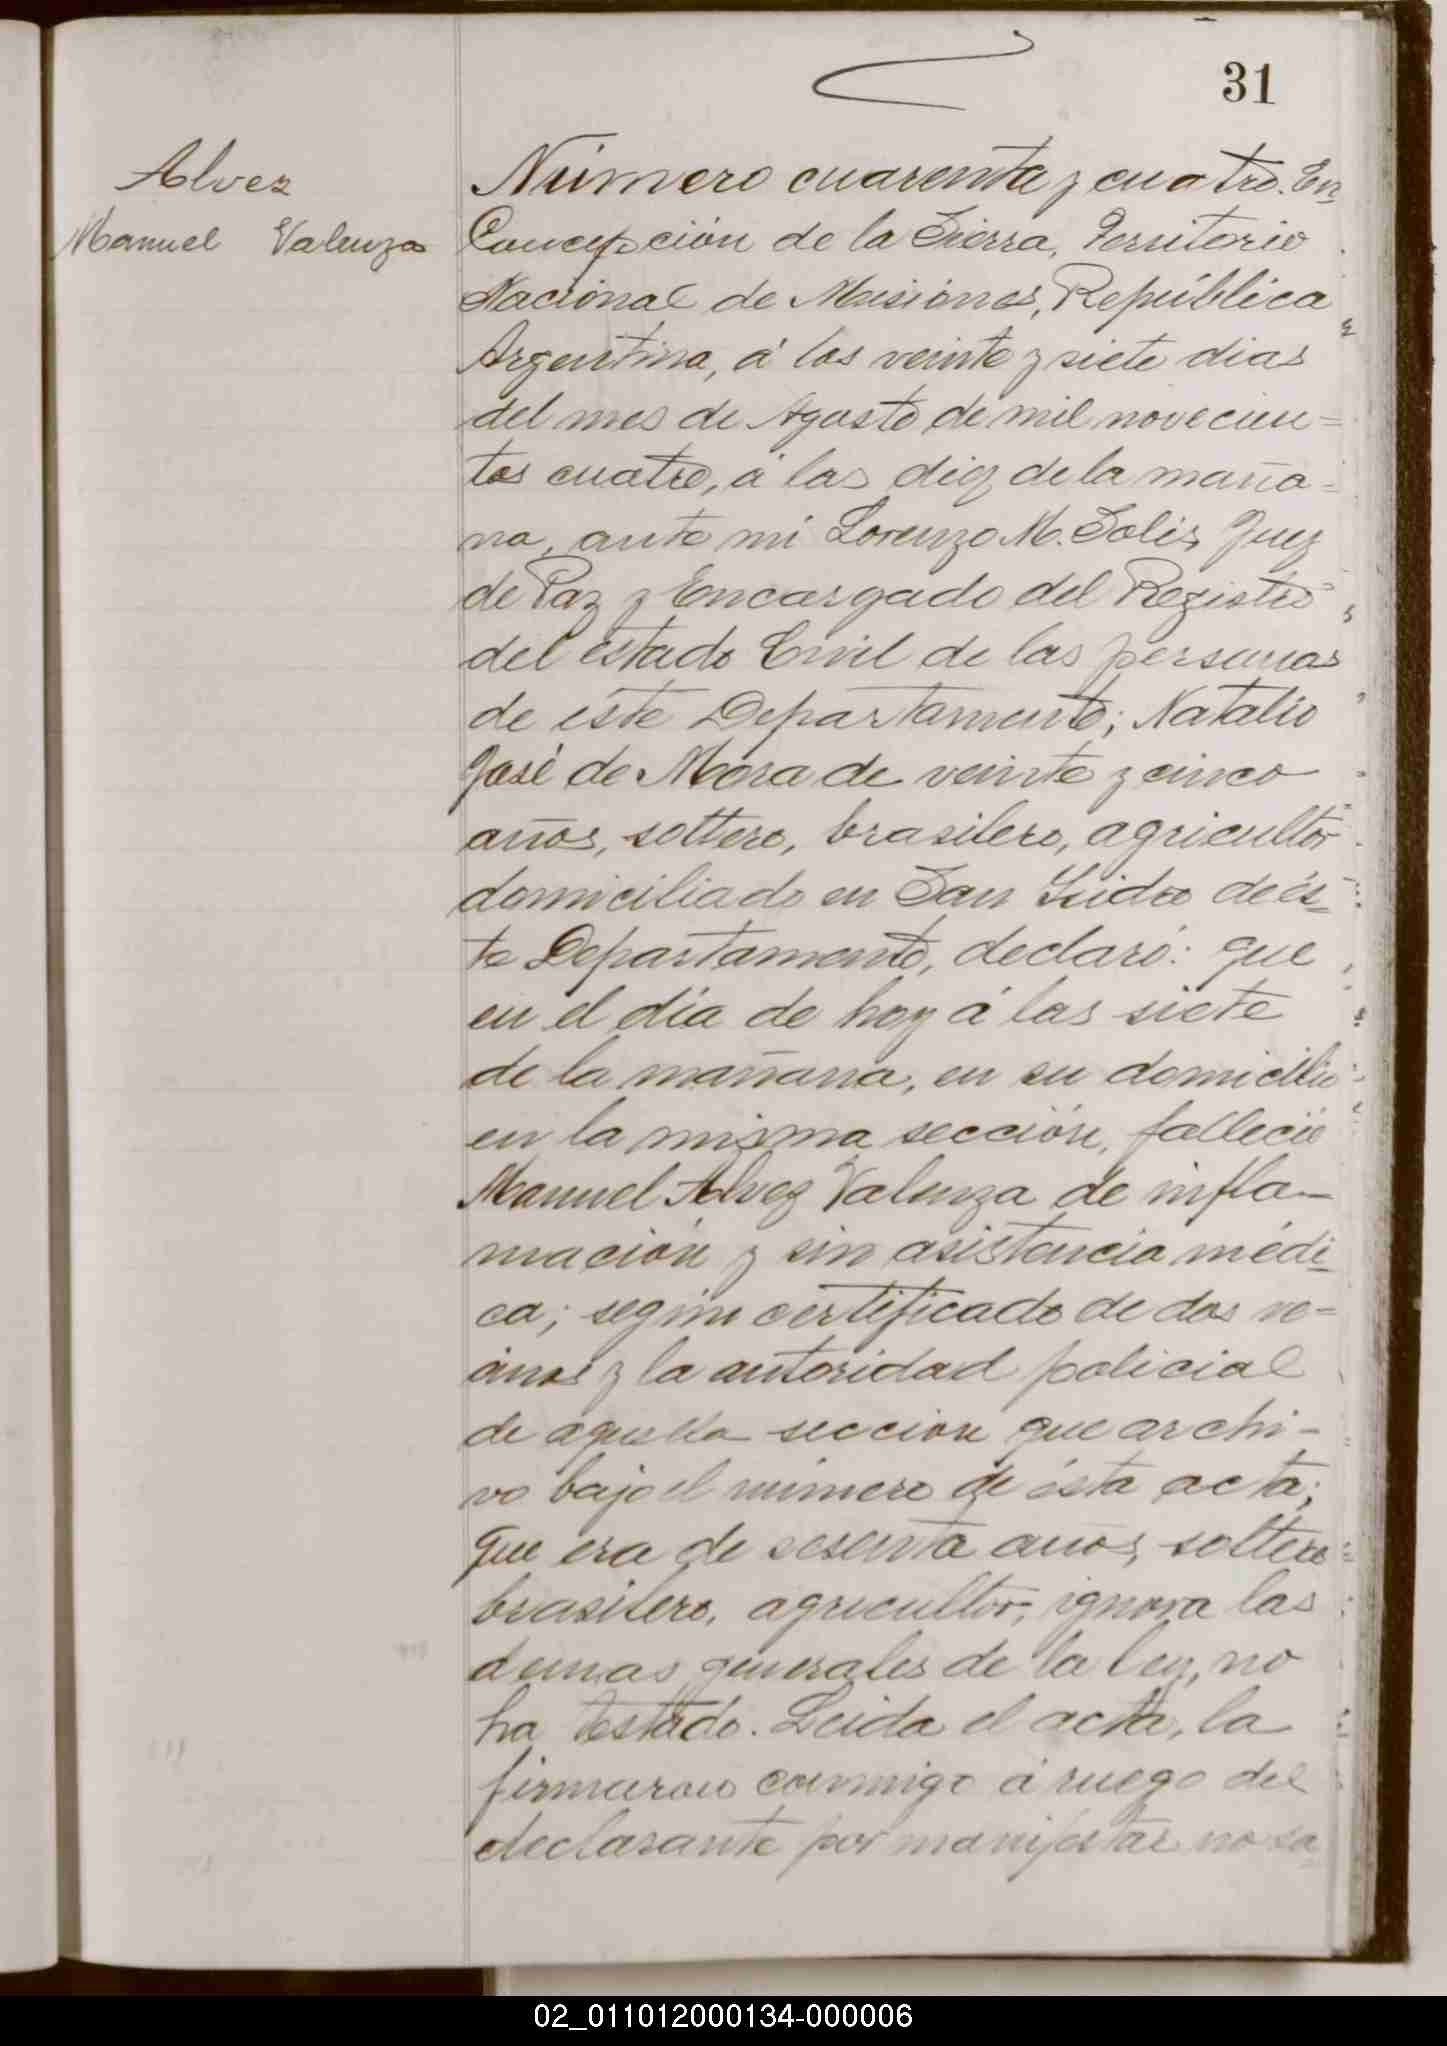 31
Alvez
Manuel Valenza
Número cuarenta y cuatro. En
Concepción de la Sierra, Territorio
Nacional de Misiones, República
Argentina, á los veinte y siete dias
del mes de Agosto de mil novecien=
tos cuatro, á las diez de la maña=
na, ante mi Lorenzo M. Solis, Juez
de Paz y Encargado del Registro
del estado Civil de las personas
de éste Departamento; Natalio
José de Mora de veinte y cinco
años, soltero, brasilero, agricultor
domiciliado en San Isidro de és=
te Departamento, declaró: que
en el día de hoy á las siete
de la mañana, en su domicilio
en la misma sección, falleció
Manuel Alvez Valenza de infla-
mación y sin asistencia médi=
ca; según certificado de dos ve=
cinos y la autoridad policial
de aquella sección que archi-
vo bajo el número de ésta acta;
que era de sesenta años, soltero
brasilero, agricultor, ignora las
demas generales de la ley, no
ha testado. Leida el acta, la
firmaron conmigo á ruego del
declarante por manifestar no sa=
02_011012000134-000006